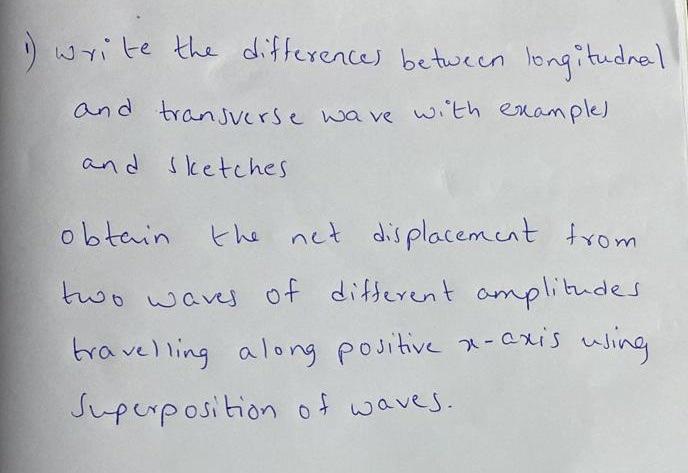 1) write the differences between longitudnal
and transverse wave with examples
and sketches
obtain the net displacement from
two waves of different amplitudes
travelling along positive x-axis using
Superposition of waves.